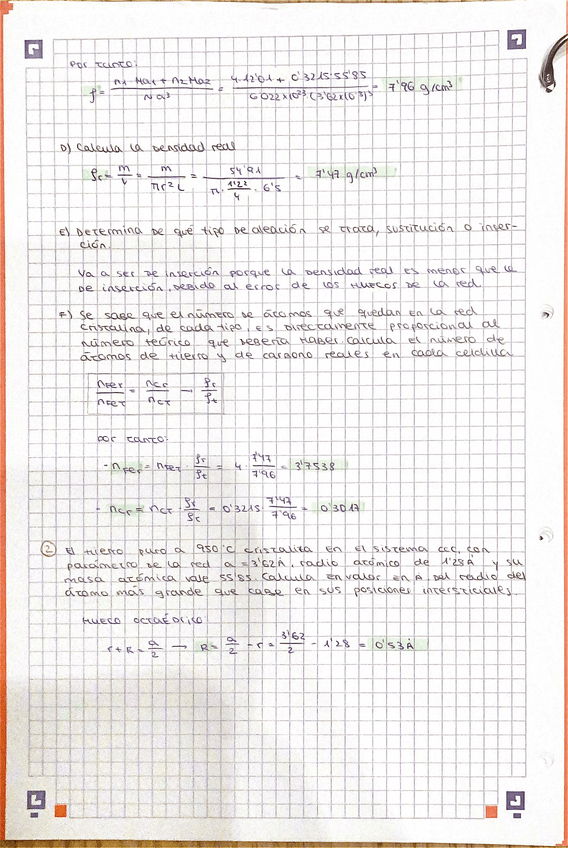 Por tanto:
ρ = (n1·Ma1 + n2·Ma2)/(N a³) = (4·12'01 + 0'3215·55'85)/(6'022x10²³ (3'62x10⁻⁸)³) = 7'96 g/cm³
D) Calcula la densidad real
ρr = m/V = m/(πr²L) = 54'91/(π·1'22/4·6'5) = 7'47 g/cm³
E) Determina de qué tipo de aleación se trata, sustitución o inser-
ción.
Va a ser de inserción porque la densidad real es menor que la
de inserción, debido al error de los huecos de la red
F) Se sabe que el número de átomos que quedan en la red
cristalina, de cada tipo, es directamente proporcional al
número teórico que debería haber calcula el número de
átomos de hierro y de carbono reales en cada celdilla
nFer/nFeT = nCr/nCT → ρr/ρt
por tanto:
- nFer = nFeT · ρr/ρt = 4 · 7'47/7'96 = 3'7538
- nCr = nCT · ρr/ρt = 0'3215 · 7'47/7'96 = 0'3017
2 El hierro puro a 950°C cristaliza en el sistema ccc, con
parámetro de la red a = 3'62Å, radio atómico de 1'28Å y su
masa atómica vale 55'85. Calcula en valor en A. del radio del
átomo más grande que cabe en sus posiciones intersticiales.
Hueco octaédrico
r+R = a/2 → R = a/2 - r = 3'62/2 - 1'28 = 0'53Å